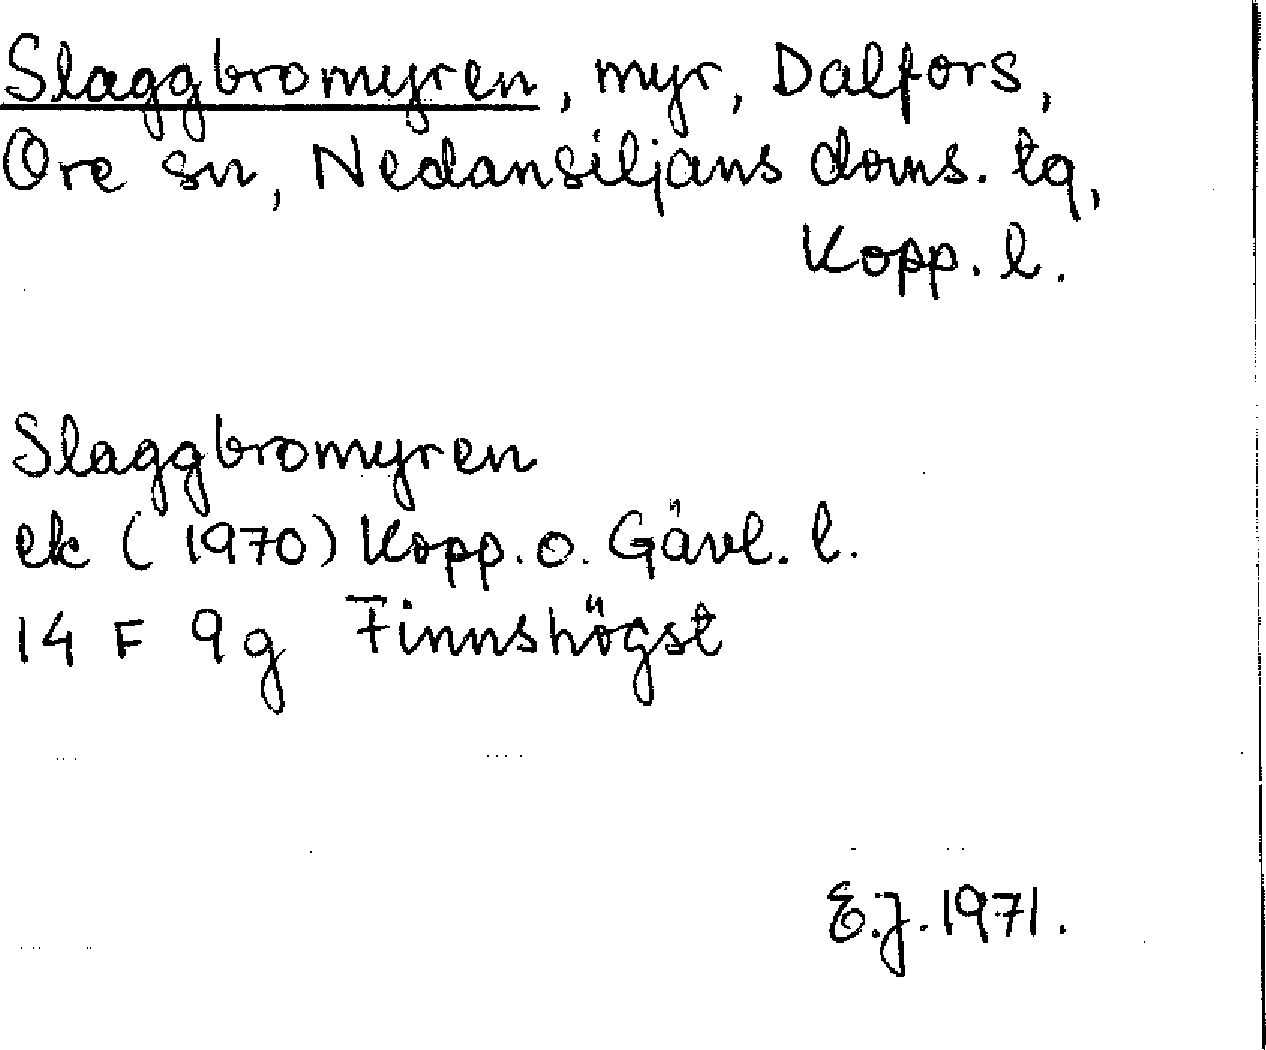 Slaggbromyren, myr, Dalfors,
Ore sn, Nedansiljans doms. tg,
Kopp. l.
Slaggbromyren
ek (1970) Kopp. o. Gävl. l.
14 F 9g Finnshögst
E.J. 1971.